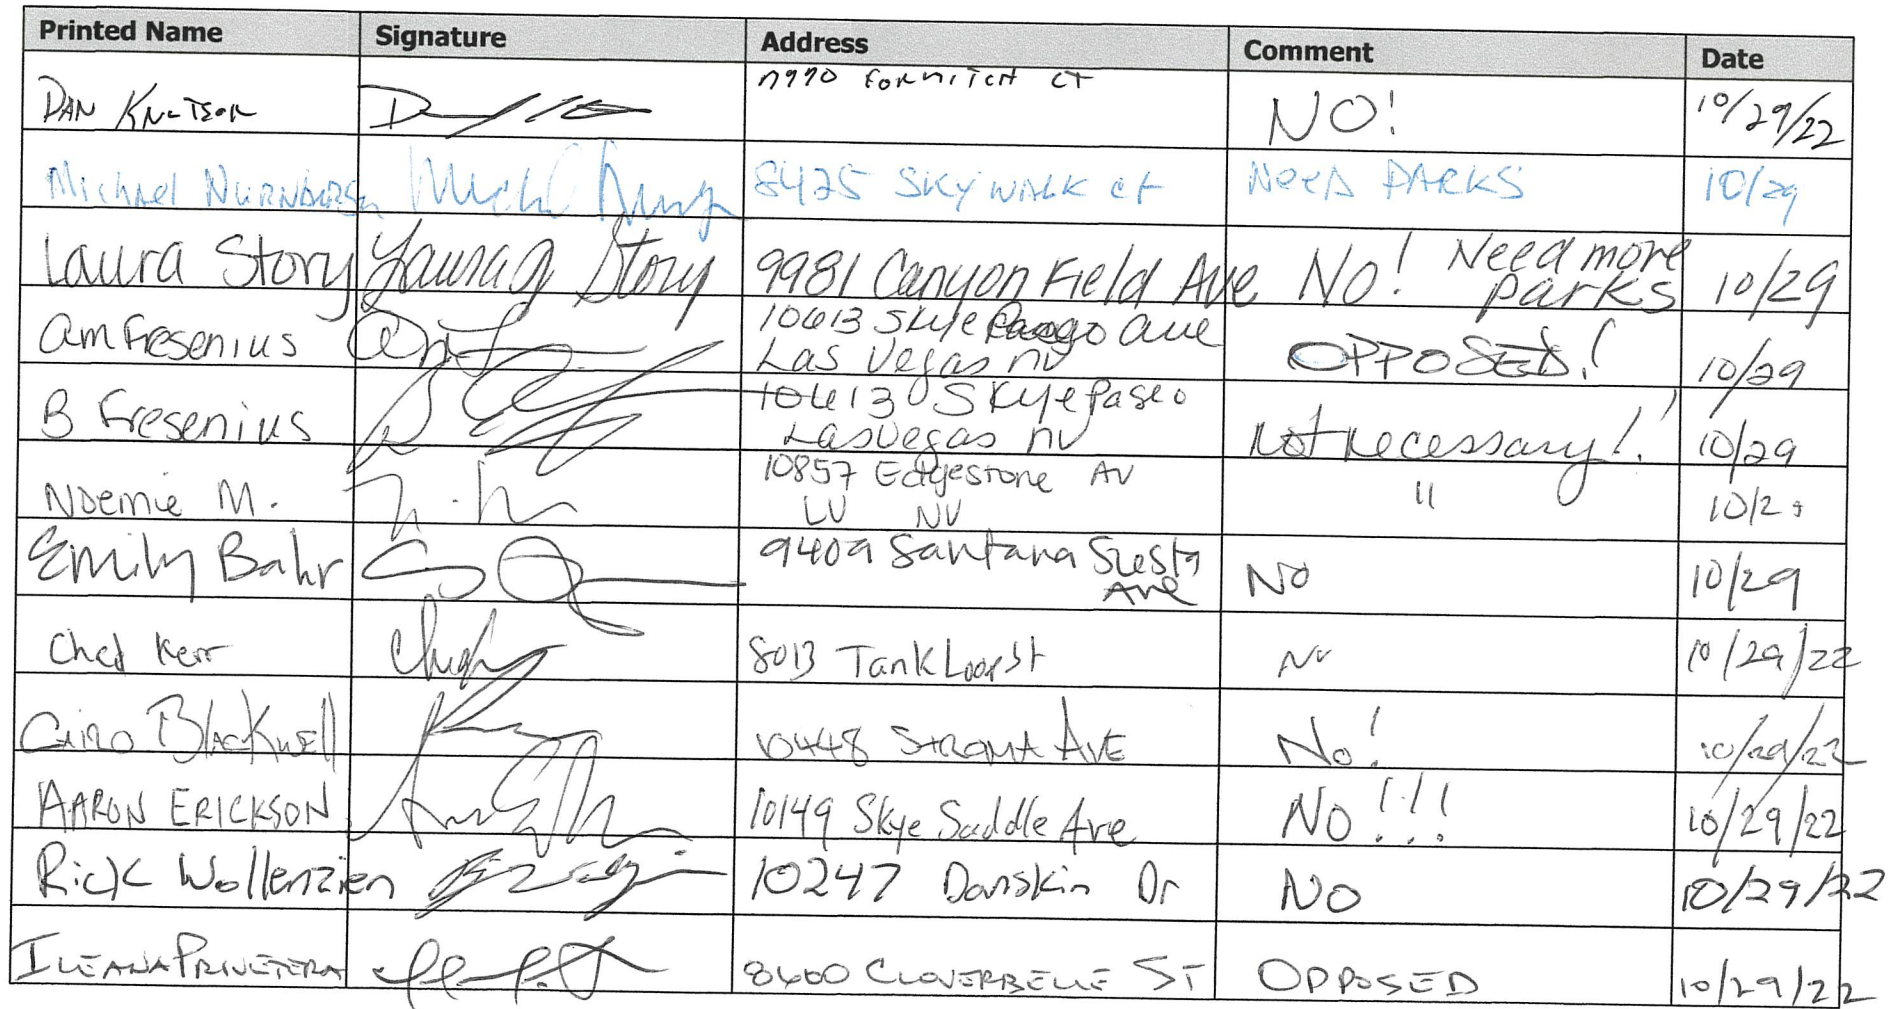 Printed Name Signature Address Comment Date
DAN KNUTSON CT NO! 10/29/22
Michael 8425 SKYWALK ct NEED PARKS 10/29
Laura Story Laura Story 9981 Canyon Field Ave No! Need more
parks 10/29
am Fresenius 10613 Skye Paseo ave
Las Vegas nv OPPOSED! 10/29
B Fresenius 10613 Skye Paseo
Las Vegas nv Not necessary!! 10/29
Noemie M. 10857 Edgestone AV
LV NV " 10/2
Emily Bahr 9409 Santana Siesta
Ave NO 10/29
Ched Kerr 8013 Tank Loop St No 10/29/22
Blackwell 10448 AVE No! 10/29/22
AARON ERICKSON 10149 Skye Saddle Ave NO!!! 10/29/22
Rick Wollenzien 10247 Danskin Dr NO 10/29/22
ILEANA PRIVETERA 8660 CLOVERBELLE ST OPPOSED 10/29/22